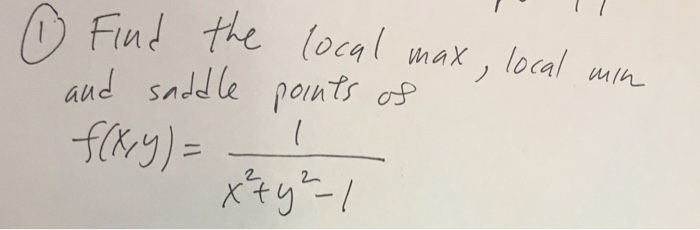 ① Find the local max, local min
and saddle points of
f(x,y) = 1 / (x²+y²-1)